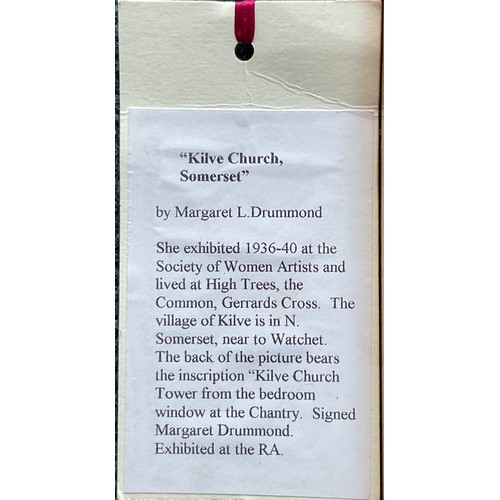 “Kilve Church,
Somerset”
by Margaret L.Drummond
She exhibited 1936-40 at the
Society of Women Artists and
lived at High Trees, the
Common, Gerrards Cross.  The
village of Kilve is in N.
Somerset, near to Watchet.
The back of the picture bears
the inscription “Kilve Church
Tower from the bedroom
window at the Chantry.  Signed
Margaret Drummond.
Exhibited at the RA.